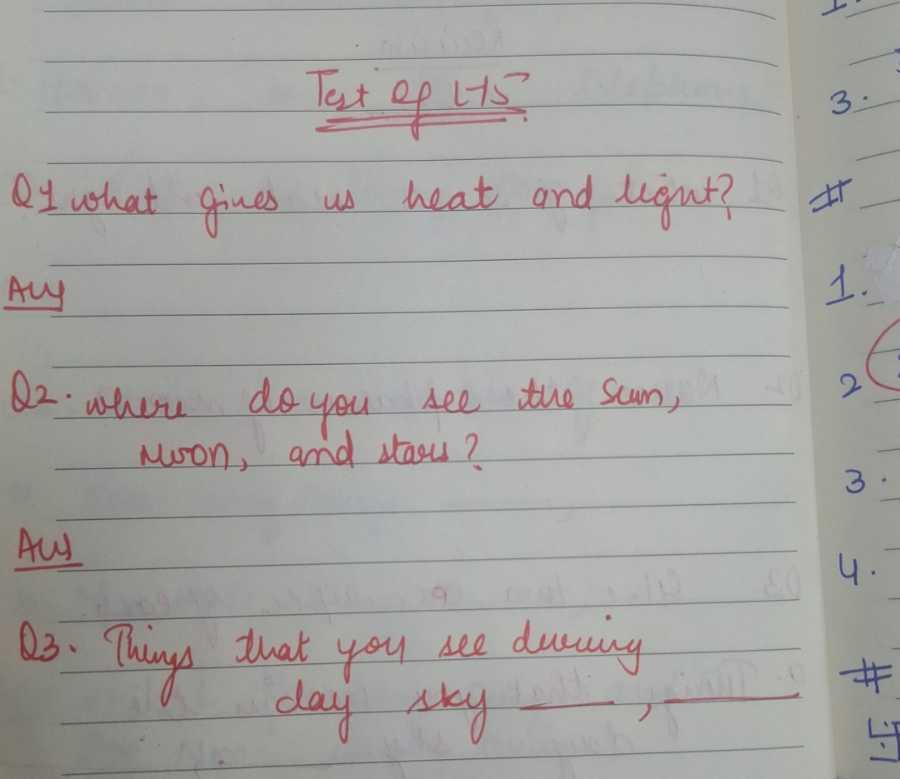 Test of L-15
Q1 what gives us heat and light?
Ans
Q2. where do you see the Sun,
Moon, and stars?
Ans
Q3. Things that you see during
day sky ____, ____
3.
#
1.
2
3.
4.
#